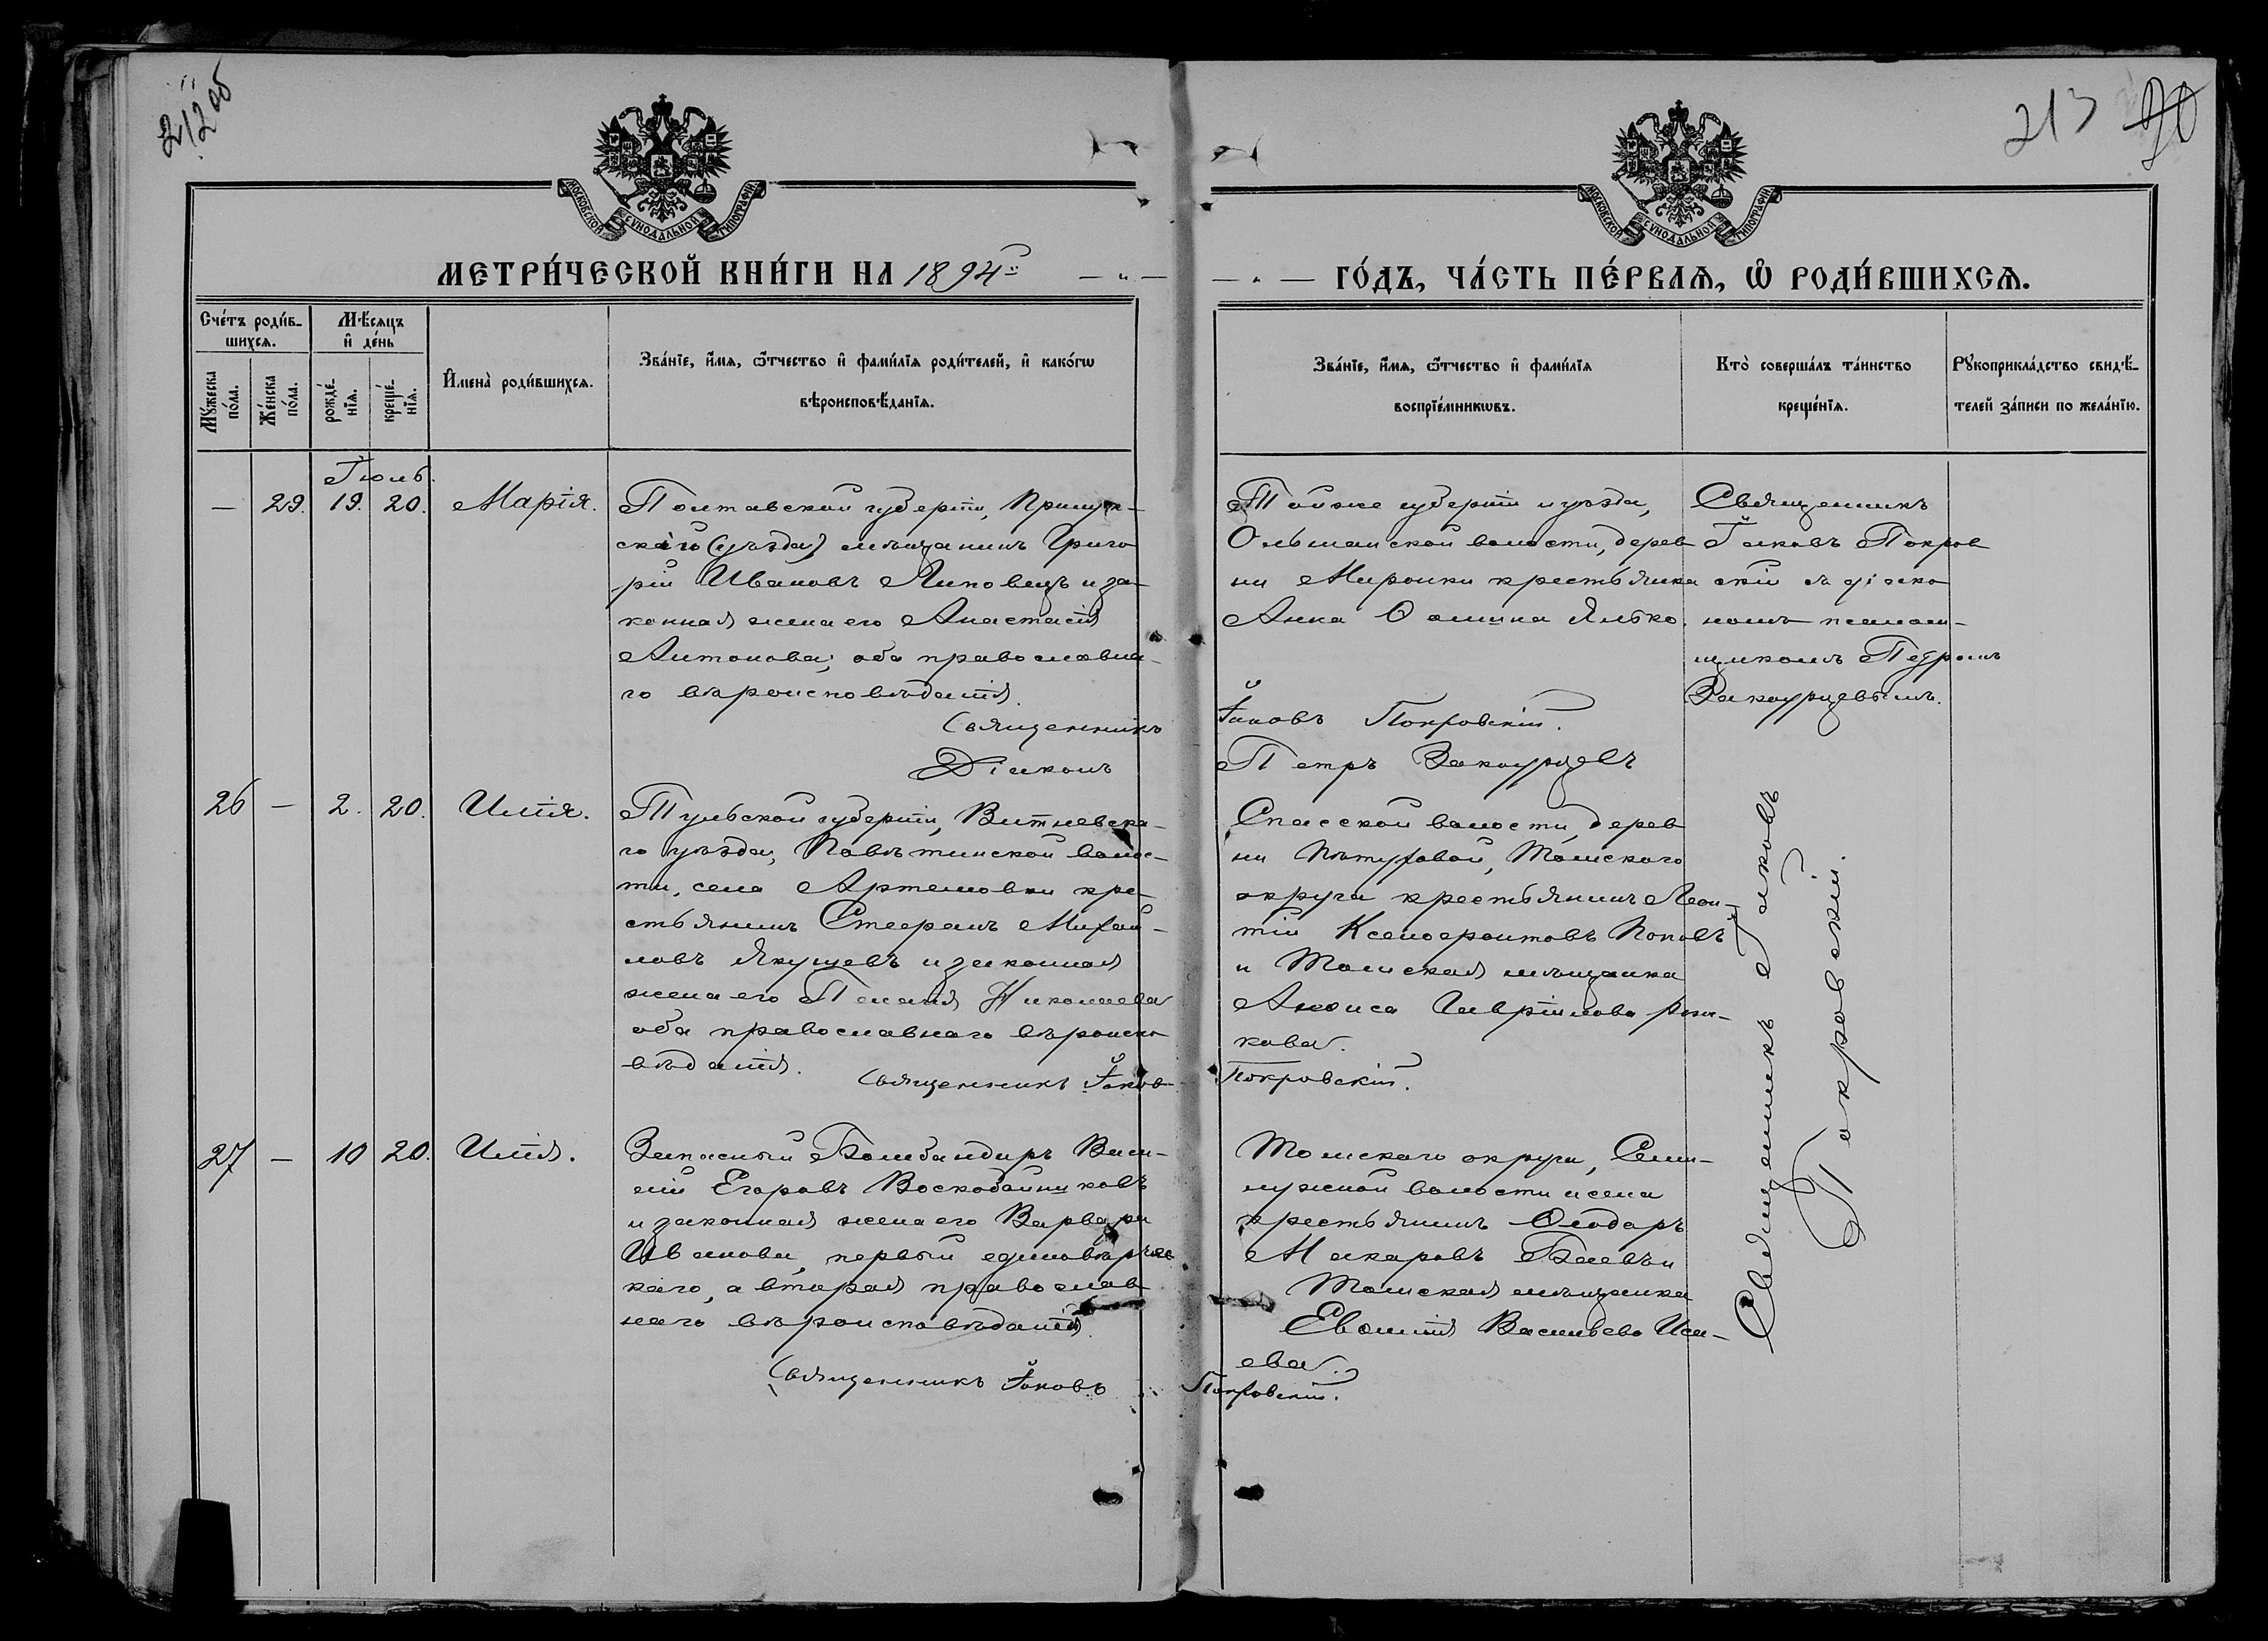 212 об
213
20
МОСКОВСКОЙ СѴНОДАЛЬНОЙ ТИПОГРАФІИ
МОСКОВСКОЙ СѴНОДАЛЬНОЙ ТИПОГРАФІИ
МЕТРИ́ЧЕСКОЙ КНИ́ГИ НА 1894
ГО́ДЪ, ЧА́СТЬ ПЕ́РВАѦ, Ѡ РОДИ́ВШИХСѦ.
Сче́тъ роди́в-
шихсѧ.
Мѣ́сѧцъ
и҆ де́нь
Мꙋ́жеска по́ла.
Же́нска по́ла.
рожде́-нїѧ.
креще́-нїѧ.
И҆мена̀ роди́вшихсѧ.
Зва́нїе, и҆́мѧ, ѻ҆́тчество и҆ фами́лїѧ роди́телей, и҆ како́гѡ
вѣроисповѣ́данїѧ.
Зва́нїе, и҆́мѧ, ѻ҆́тчество и҆ фами́лїѧ
воспрїе́мникѡвъ.
Кто̀ соверша́лъ та́инство
креще́нїѧ.
Рꙋкоприкла́дство свидѣ́-
телей за́писи по жела́нїю.
Іюль.
— 29. 19. 20. Марія.
Полтавской губерніи, Прилук-
скаго (уѣзда) мѣщанинъ Григо
рій Ивановъ Липовецъ и за-
конная жена его Анастасія
Антонова; оба православна-
го вѣроисповѣданія.
Священникъ
Діаконъ
Тойже губерніи и уѣзда,
Ольшанской волости, дерев
ни Миронки крестьянка
Анна Ѳомина Ялько.
Іаковъ Покровскій.
Петръ Закоурцевъ
Священникъ
Іаковъ Покров
скій съ діако
номъ псалом-
щикомъ Петромъ
Закоурцевымъ.
26 — 2. 20. Илія.
Тульской губерніи,
го уѣзда, волос-
ти, села Артемовки кре-
стьянинъ Стефанъ Михай-
ловъ Якушевъ и законная
жена его Пелагія Николаева
оба православнаго вѣроиспо
вѣданія.
Священникъ Іаковъ
Спасской волости, дерев
ни Пѣтуховой, Томскаго
округа крестьянинъ Леон-
тій Ксенофонтовъ Поповъ
и Томская мѣщанка
Анѳиса Гавріилова
кова.
Покровскій.
27 — 10 20. Илія.
Запасный Бомбандиръ Васи-
лій Егоровъ Воскобойниковъ
и законная жена его Варвара
Иванова, первый единовѣрчес
каго, а вторая православ
наго вѣроисповѣданія.
Священникъ Іаковъ
Томскаго округа, Семи-
лужной волости и села
крестьянинъ Ѳеодоръ
Макаровъ Баевъ и
Томская мѣщанка
Евѳимія Васильева Иса-
ева.
Покровскій.
Священникъ Іаковъ
Покровскій.